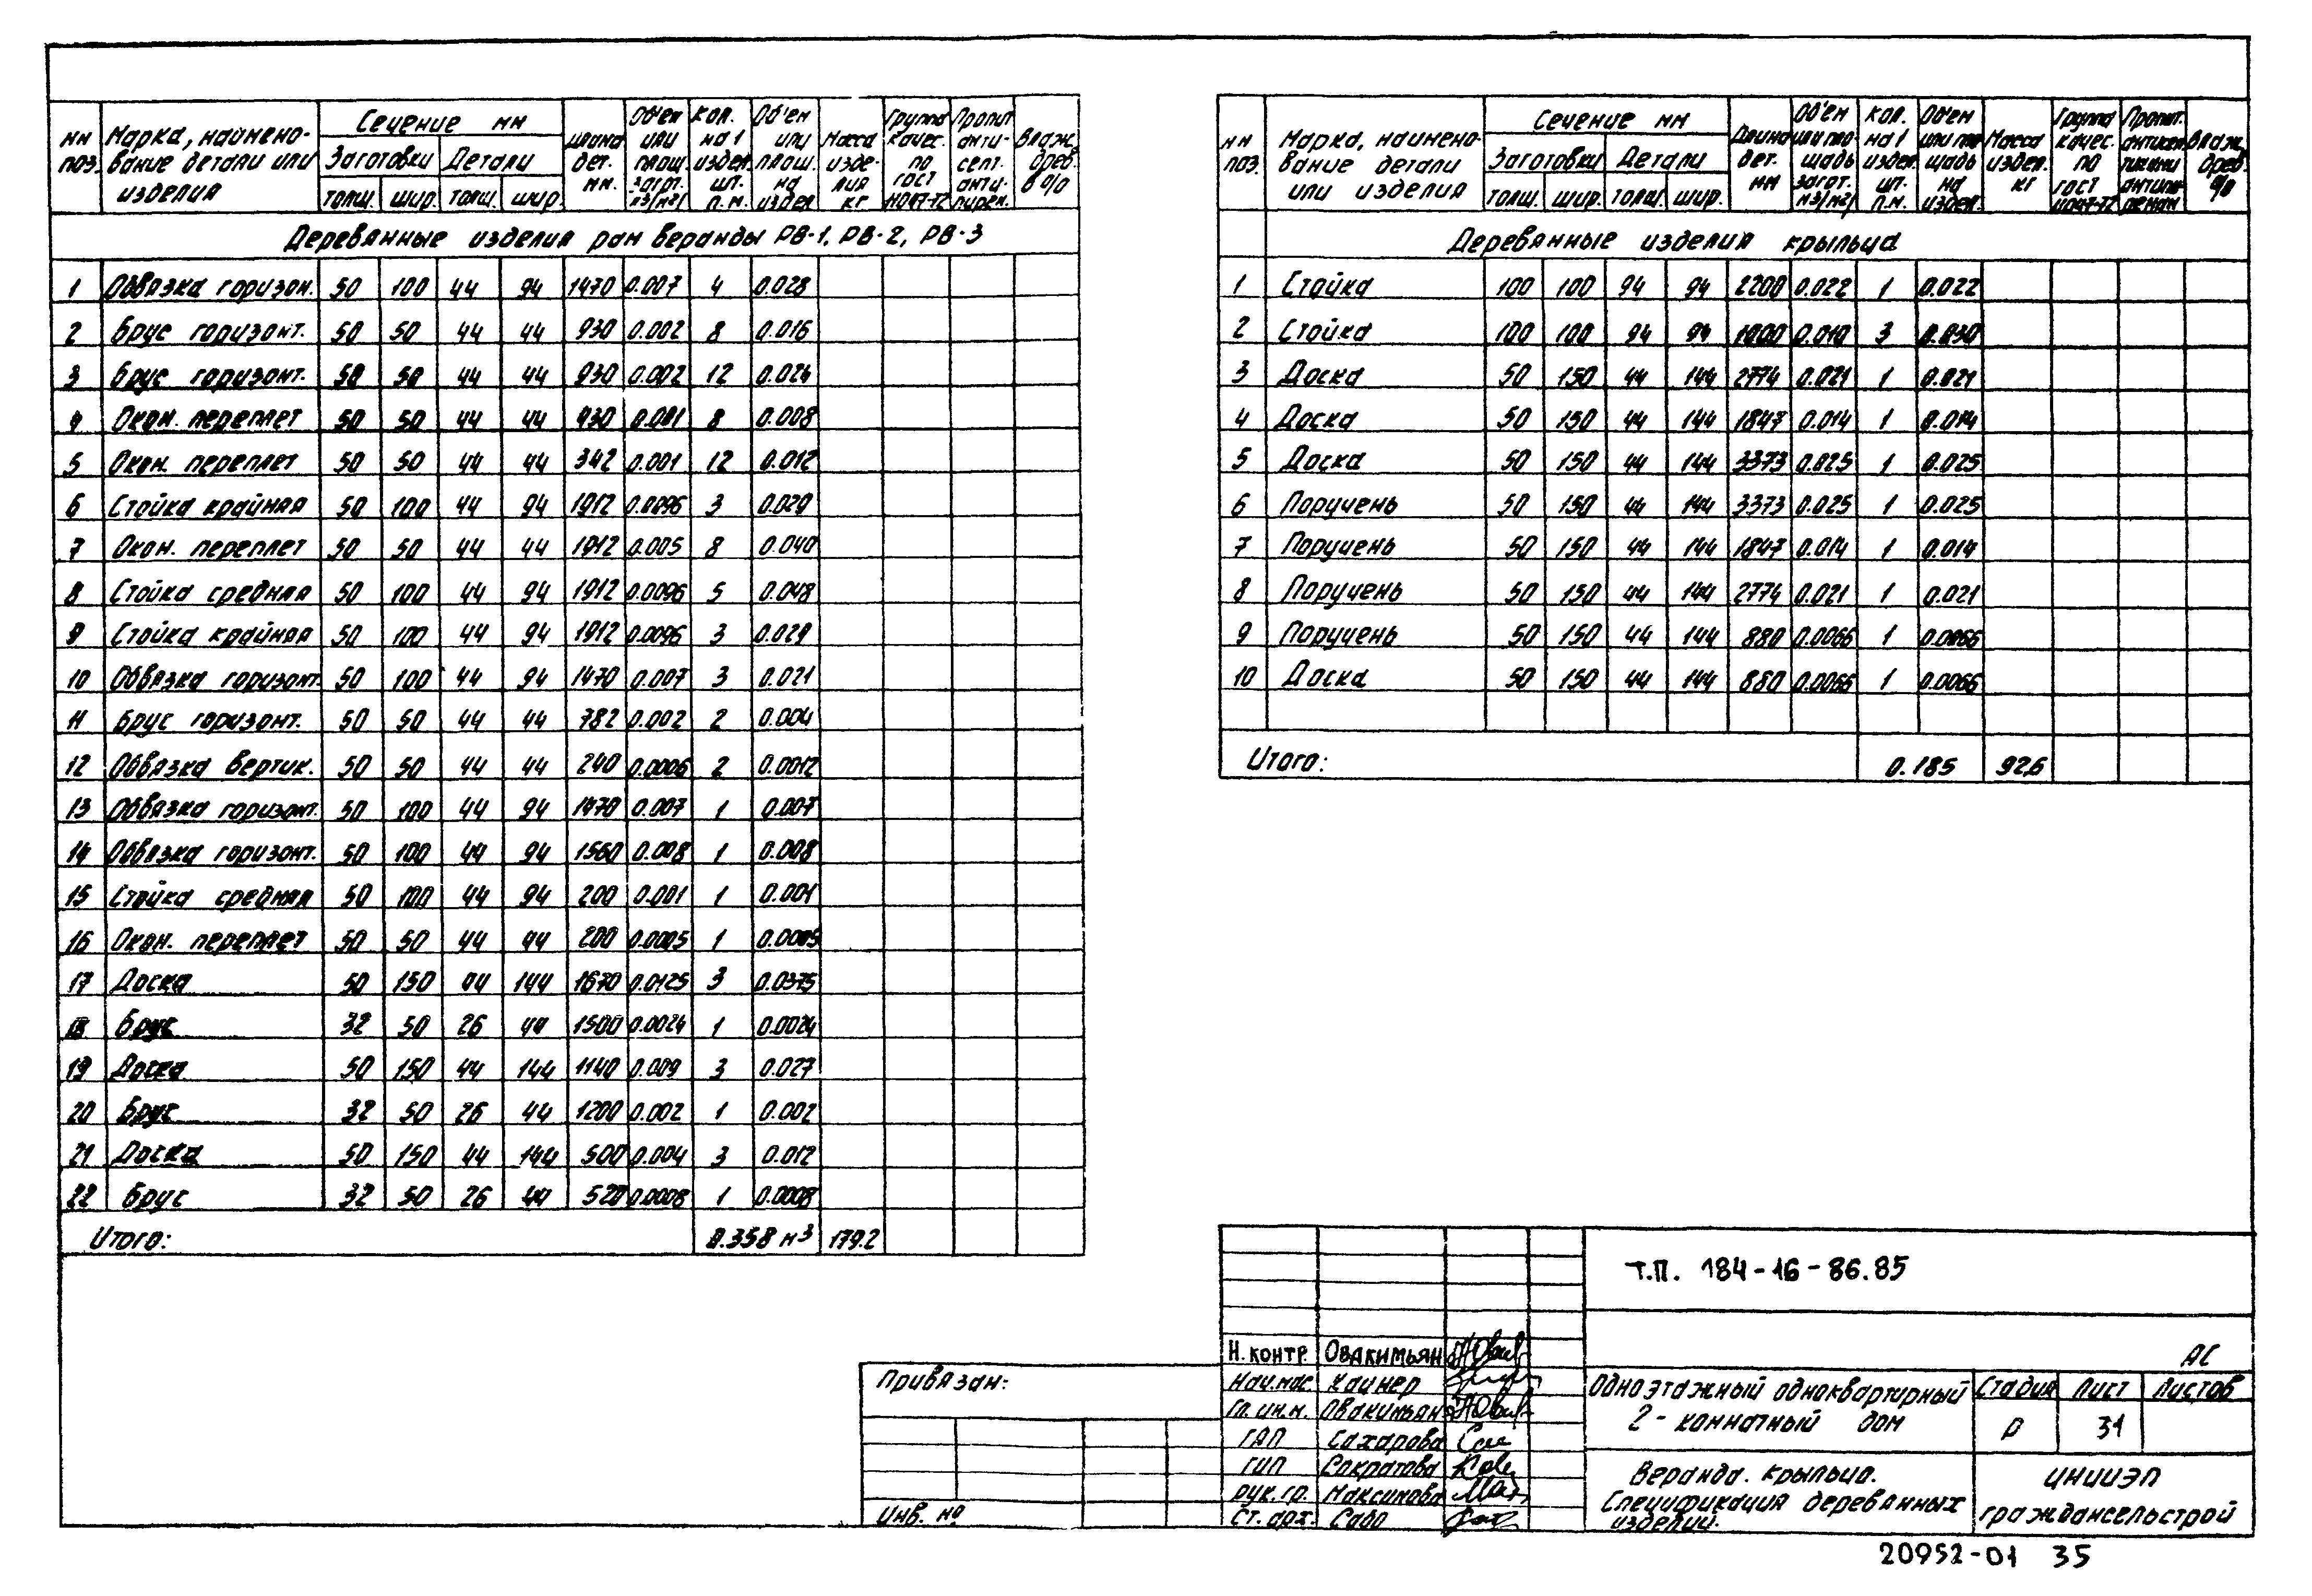 нн поз. Марка, наимено-вание детали или изделия Сечение мм Заготовки Детали толщ. шир. толщ. шир. Длина дет. мм. Объем или площ. загот. м3/м2/ Кол. на 1 издел. шт. п.м. Объем или площ. на издел. Масса изде-лия кг Группа качес. по гост 11047-72 Пропит. анти-септ. анти-пирен. Влаж. древ. в %
Деревянные изделия рам веранды РВ-1, РВ-2, РВ-3
1 Обвязка горизон. 50 100 44 94 1470 0.007 4 0.028
2 Брус горизонт. 50 50 44 44 930 0.002 8 0.016
3 Брус горизонт. 50 50 44 44 930 0.002 12 0.024
4 Окон. переплет 50 50 44 44 430 0.001 8 0.008
5 Окон. переплет 50 50 44 44 342 0.001 12 0.012
6 Стойка крайняя 50 100 44 94 1912 0.0096 3 0.029
7 Окон. переплет 50 50 44 44 1912 0.005 8 0.040
8 Стойка средняя 50 100 44 94 1912 0.0096 5 0.048
9 Стойка крайняя 50 100 44 94 1912 0.0096 3 0.029
10 Обвязка горизонт. 50 100 44 94 1470 0.007 3 0.021
11 Брус горизонт. 50 50 44 44 782 0.002 2 0.004
12 Обвязка вертик. 50 50 44 44 240 0.0006 2 0.0012
13 Обвязка горизонт. 50 100 44 94 1470 0.007 1 0.007
14 Обвязка горизонт. 50 100 44 94 1560 0.008 1 0.008
15 Стойка средняя 50 100 44 94 200 0.001 1 0.001
16 Окон. переплет 50 50 44 44 200 0.0005 1 0.0005
17 Доска 50 150 44 144 1670 0.0125 3 0.0375
18 Брус 32 50 26 44 1500 0.0024 1 0.0024
19 Доска 50 150 44 144 1140 0.009 3 0.027
20 Брус 32 50 26 44 1200 0.002 1 0.002
21 Доска 50 150 44 144 500 0.004 3 0.012
22 Брус 32 50 26 44 520 0.0008 1 0.0008
Итого: 0.358 м3 179.2
нн поз. Марка, наимено-вание детали или изделия Сечение мм Заготовки Детали толщ. шир. толщ. шир. Длина дет. мм Объем или пло-щадь загот. м3/м2/ Кол. на 1 издел. шт. п.м. Объем или пло-щадь на издел. Масса издел. кг Группа качес. по гост 11047-72 Пропит. антисеп-тиками антипи-ренам Влаж. древ. %
Деревянные изделия крыльца
1 Стойка 100 100 94 94 2200 0.022 1 0.022
2 Стойка 100 100 94 94 1000 0.010 3 0.030
3 Доска 50 150 44 144 2774 0.021 1 0.021
4 Доска 50 150 44 144 1847 0.014 1 0.014
5 Доска 50 150 44 144 3373 0.025 1 0.025
6 Поручень 50 150 44 144 3373 0.025 1 0.025
7 Поручень 50 150 44 144 1847 0.014 1 0.014
8 Поручень 50 150 44 144 2774 0.021 1 0.021
9 Поручень 50 150 44 144 880 0.0066 1 0.0066
10 Доска 50 150 44 144 880 0.0066 1 0.0066
Итого: 0.185 92,6
Т.П. 184-16-86.85
АС
Привязан:
Инв. №
Н. контр. Овакимьян
Нач. мас. Кацнер
Гл. ин. м. Овакимьян
ГАП Сахарова
ГИП Сократова
рук. гр. Максимова
Ст. арх. Сабо
Одноэтажный одноквартирный
2-комнатный дом
Стадия Лист Листов
Р 31
Веранда. Крыльцо.
Спецификация деревянных
изделий.
ЦНИИЭП
граждансельстрой
20952-01 35